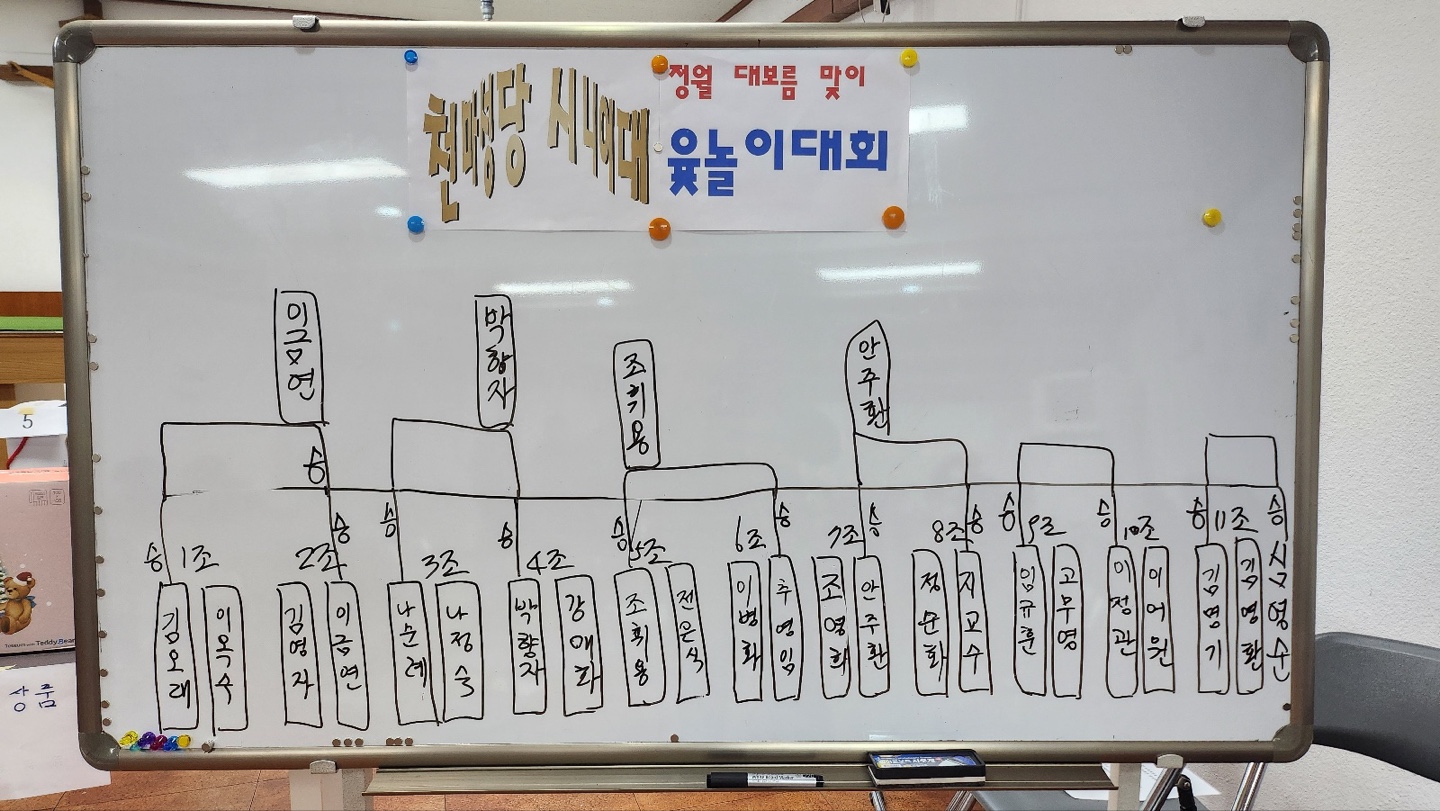 정월 대보름 맞이
천마성당 시니어대
윷놀이대회
이금연
박향자
조희용
안주환
승
승 승 승 승 승 승 승 승 승 승 승 승
1조 2조 3조 4조 5조 6조 7조 8조 9조 10조 11조
김오래 이옥수
김영자 이금연
나순례 나정숙
박향자 강애화
조희용 전은식
이병화 추영임
조영희 안주환
정순화 지교수
임규훈 고무영
이정관 이어원
김명기 김영환 심영순
5
상품
Teddy Bear